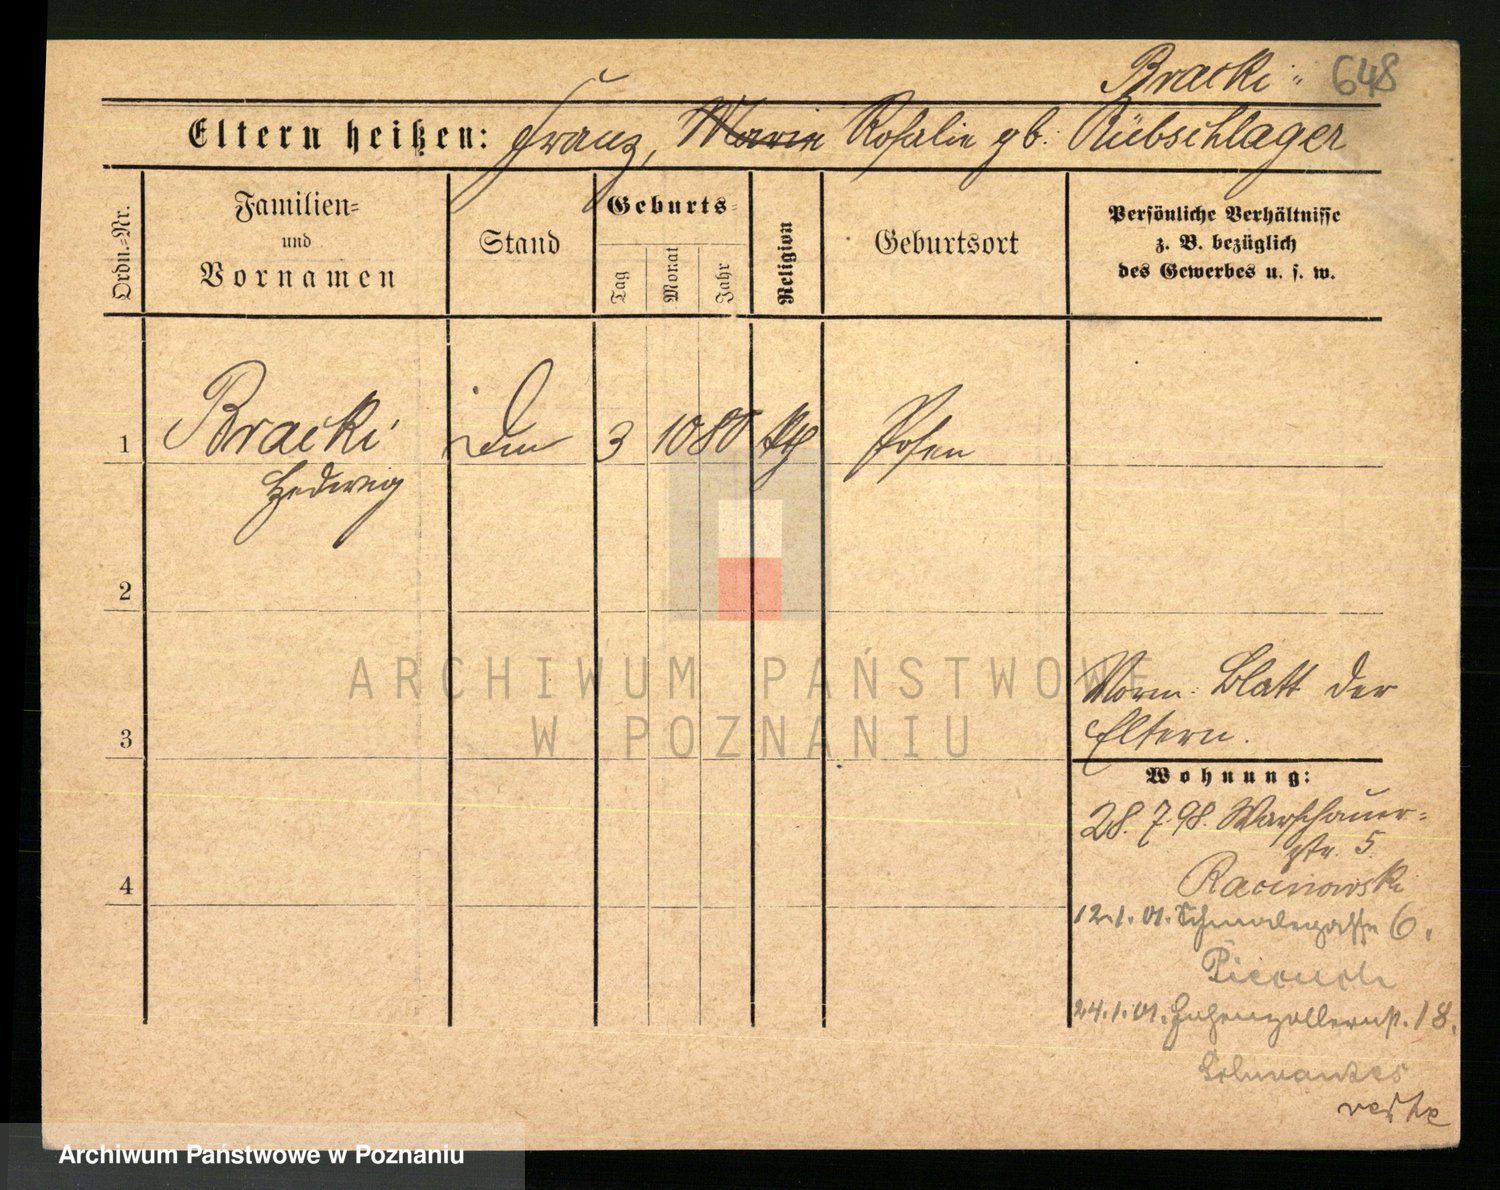 Bracki 648
Eltern heißen: Franz, Marie Rosalie gb. Rübschlager
Ordn.-Nr.
Familien-
und
Vornamen
Stand
Geburts-
Tag
Monat
Jahr
Religion
Geburtsort
Persönliche Verhältnisse
z. B. bezüglich
des Gewerbes u. s. w.
1 Bracki 3 10 80 kth Posen
Hedwig
2
ARCHIWUM PAŃSTWOWE
W POZNANIU
Norm. Blatt der
Eltern.
3
Wohnung:
28.7.98. Warschauer-
str. 5.
Racinowski
4
12.1.01. Schmalegasse 6.
24.1.01. Hohenzollernst. 18.
Archiwum Państwowe w Poznaniu